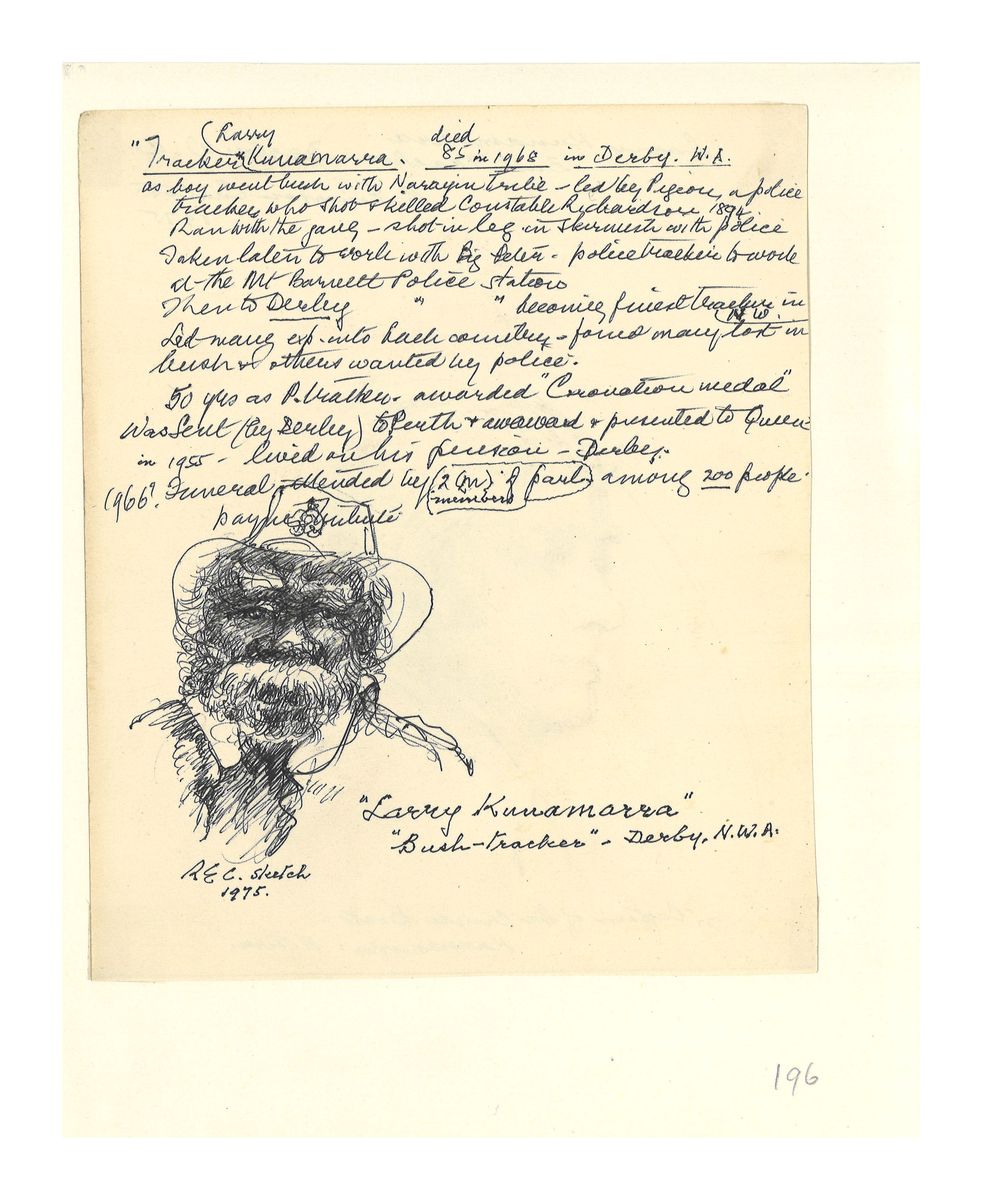 (Larry
"Tracker" Kunamarra. died 85 in 1968 in Derby. W.A.
as boy went bush with Narayin tribe - led by Pigeon, a police
tracker, who shot & killed Constable Richardson, 1894.
Ran with the gang - shot in leg in skirmish with police
Taken later to work with Big Peter - police tracker to work
at the Mt Barnett Police station
Then to Derby " " becoming finest tracker in N.W.
Led many exp. into back country - found many lost in
bush & others wanted by police.
50 yrs as P. tracker - awarded "Coronation medal"
Was sent (by Derby) to Perth & awaward & presented to Queen
in 1955 - lived on his pension - Derby.
1966? Funeral attended by (2 (M) of parl) among 200 people.
members
paying tribute
"Larry Kunamarra"
"Bush-tracker" - Derby. N.W.A.
R E C. sketch
1975.
196